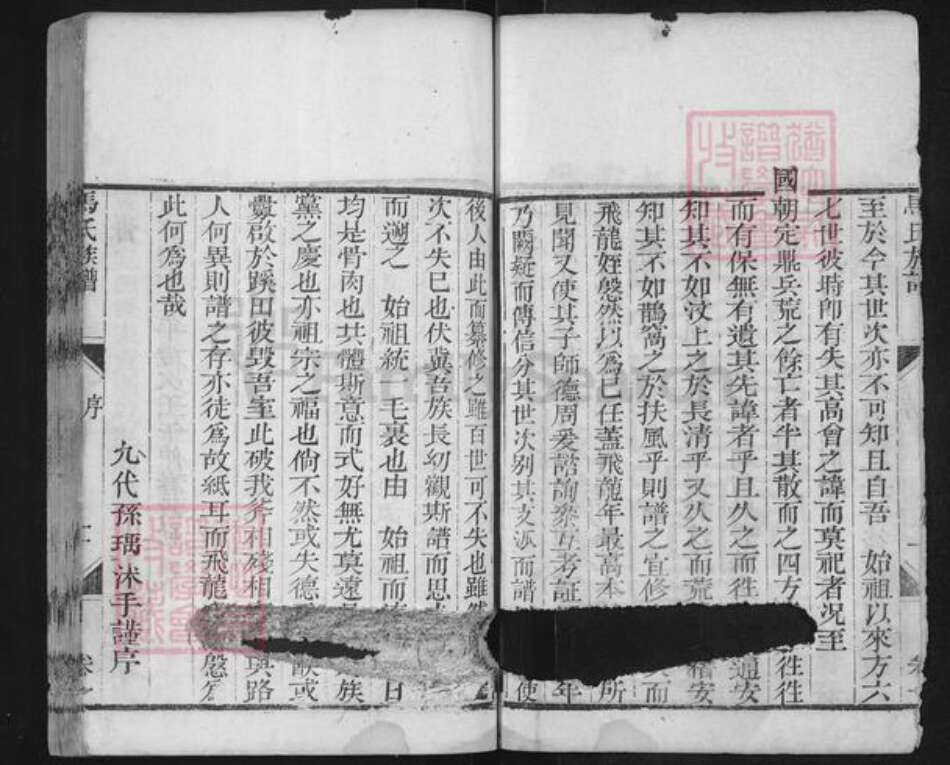 至於今其世次亦不可知且自吾 始祖以來方六
七世彼時卽有失其高曾之諱而莫祀者况至
國朝定鼎兵荒之餘亡者半其散而之四方 徃徃
而有保無有遺其先諱者乎且久之而徃 通安
知其不如汶上之於長清乎又久之而荒 稽安
知其不如鵲窩之於扶風乎則譜之宜修 而
飛龍姪慇然以爲己任蓋飛龍年最高本 所
見聞又使其子師德周爰諮詢叅互考証 年
乃闕疑而傳信分其世次别其支派而譜 使
後人由此而纂修之雖百世可不失也雖然
次不失已也伏冀吾族長幼觀斯譜而思
而遡之 始祖統一毛裏也由 始祖而 日
均是骨肉也共體斯意而式好無尤莫遠 族
黨之慶也亦祖宗之福也倘不然或失德 或
釁啟於蹊田彼毁吾室此破我斧相殘相 與路
人何異則譜之存亦徒爲故紙耳而飛龍 慇爲
此何爲也哉
九代孫瑀沐手謹序
馬氏族譜 序